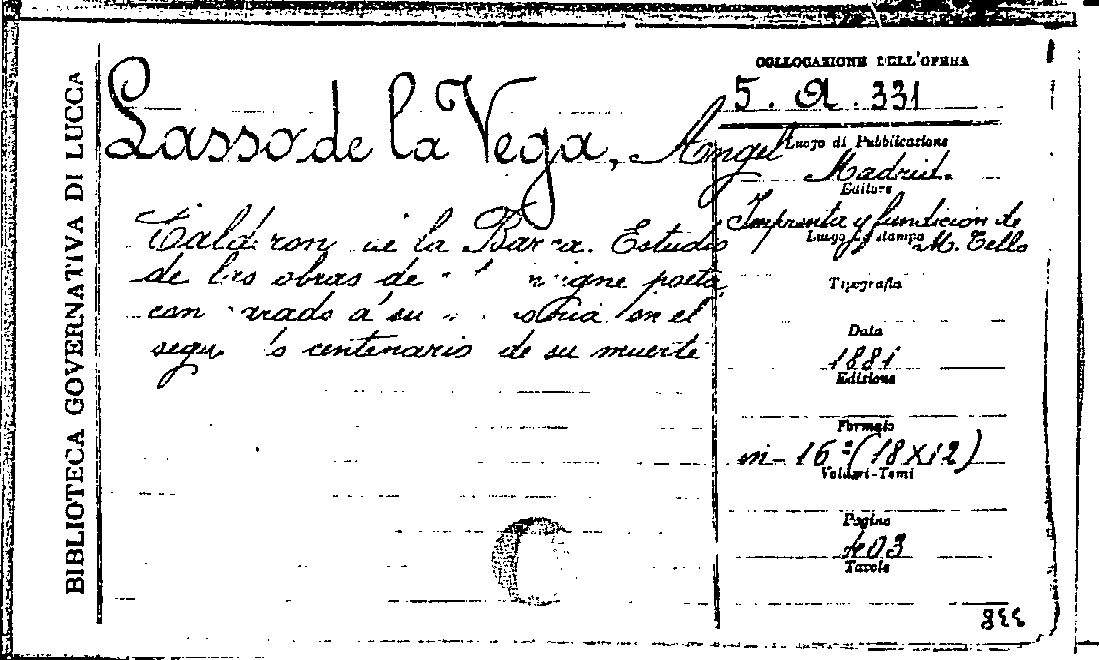 BIBLIOTECA GOVERNATIVA DI LUCCA
Lasso de la Vega, Angel
Calderon de la Barca. Estudio
de las obras de poeta
con á su en el
segu centenario de su muerte
C
COLLOCAZIONE DELL'OPERA
5. A. 331
Luogo di Pubblicazione
Madrid.
Editore
Imprenta y fundicion de
M. Tello
Luogo di stampa
Tipografia
Data
1881
Edizione
Formato
in-16º (18x12)
Volumi-Tomi
Pagine
403
Tavole